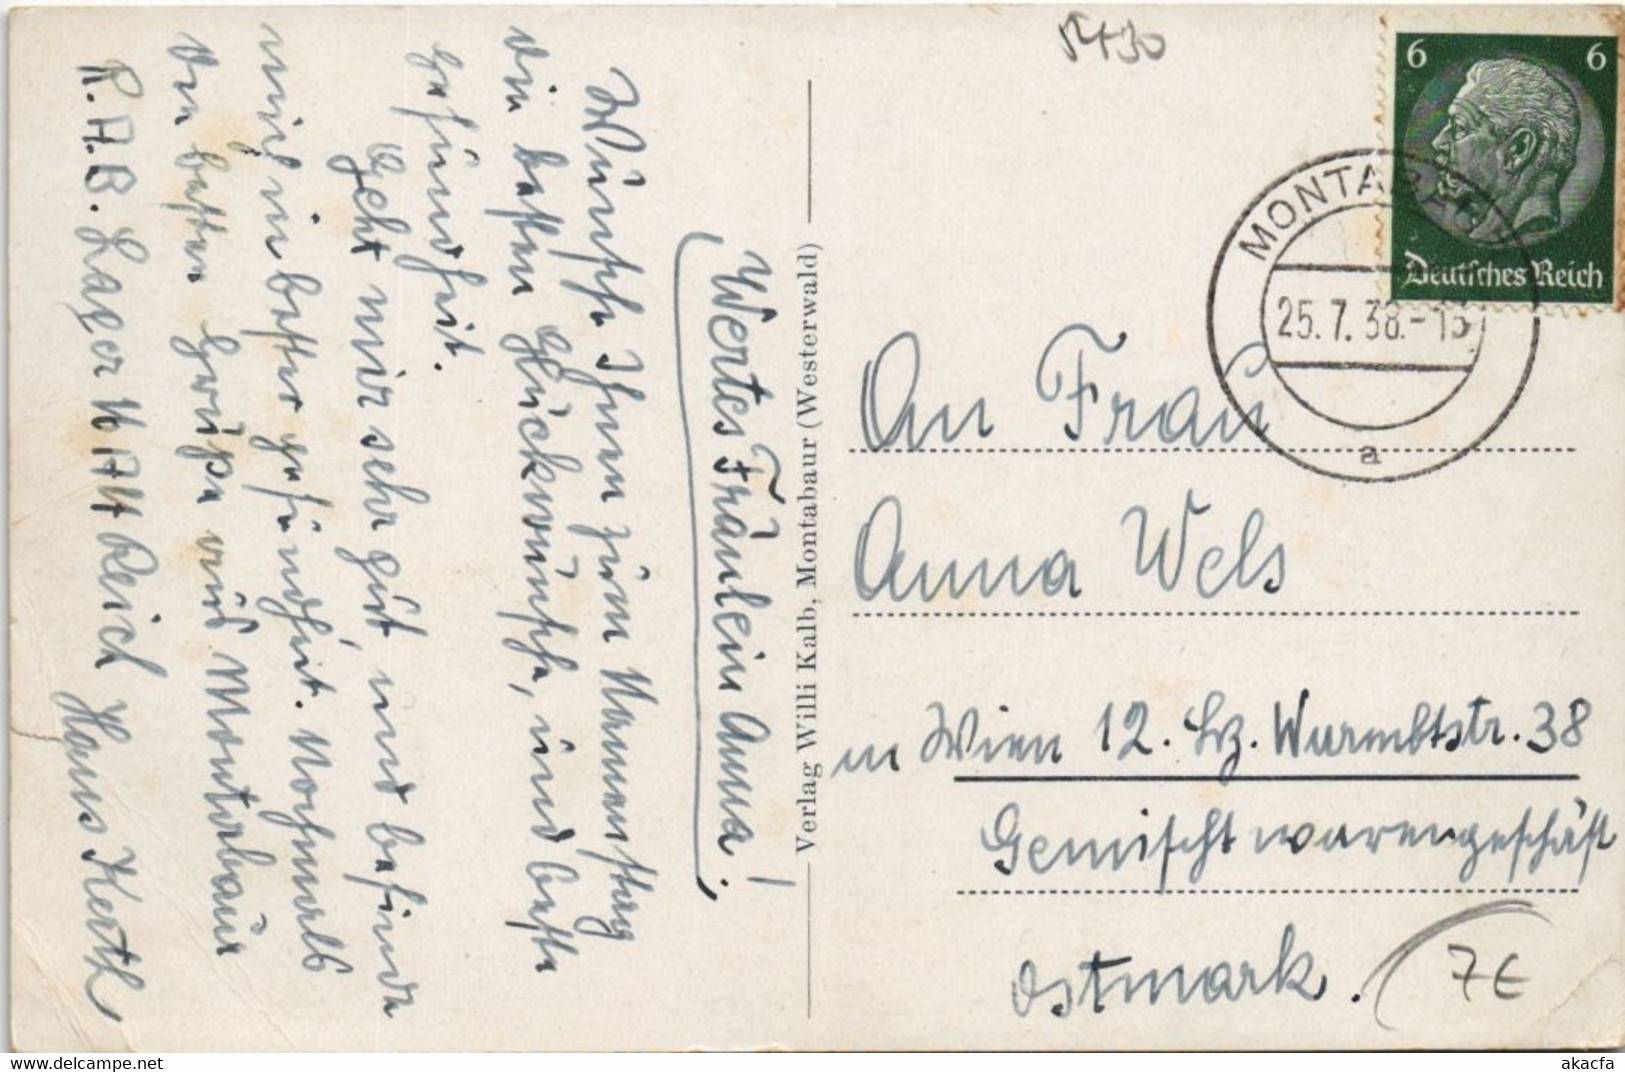 Wertes Fräulein Anna!
Wünsche Ihnen zum Namenstag
die besten Glückwünsche, und beste
Gesundheit.
Geht mir sehr gut, und befinde
mich in bester gesundheit. Nochmals
die besten Grüße aus Montabaur
R.A.B. Lager Hans Kerth
Verlag Willi Kalb, Montabaur (Westerwald)
5430
6 6
Deutsches Reich
MONTABAUR
25.7.38.-13
a
An Frau
Anna Wels
in Wien 12. Bz. Wurmbstr. 38
Gemischtwarengeschäft
Ostmark.
7€
akacfa